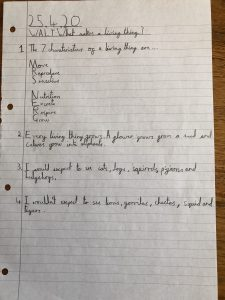 25.4.20
WALT What makes a living thing?
1. The 7 characteristics of a living thing are...
Move
Reproduce
Sensitive
Nutrition
Excrete
Respire
Grow
2. Every living thing grows. A flower grows from a seed and
calves grow into elephants.
3. I would expect to see cats, dogs, squirrels, pigeons and
hedgehogs.
4. I wouldn't expect to see lions, gorrillas, cheetas, squid and
tigers.